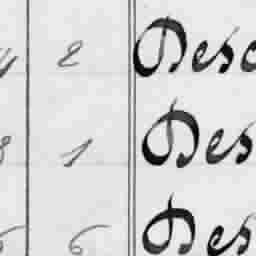 4 2 Desc
8 1 Des
5 6 Des